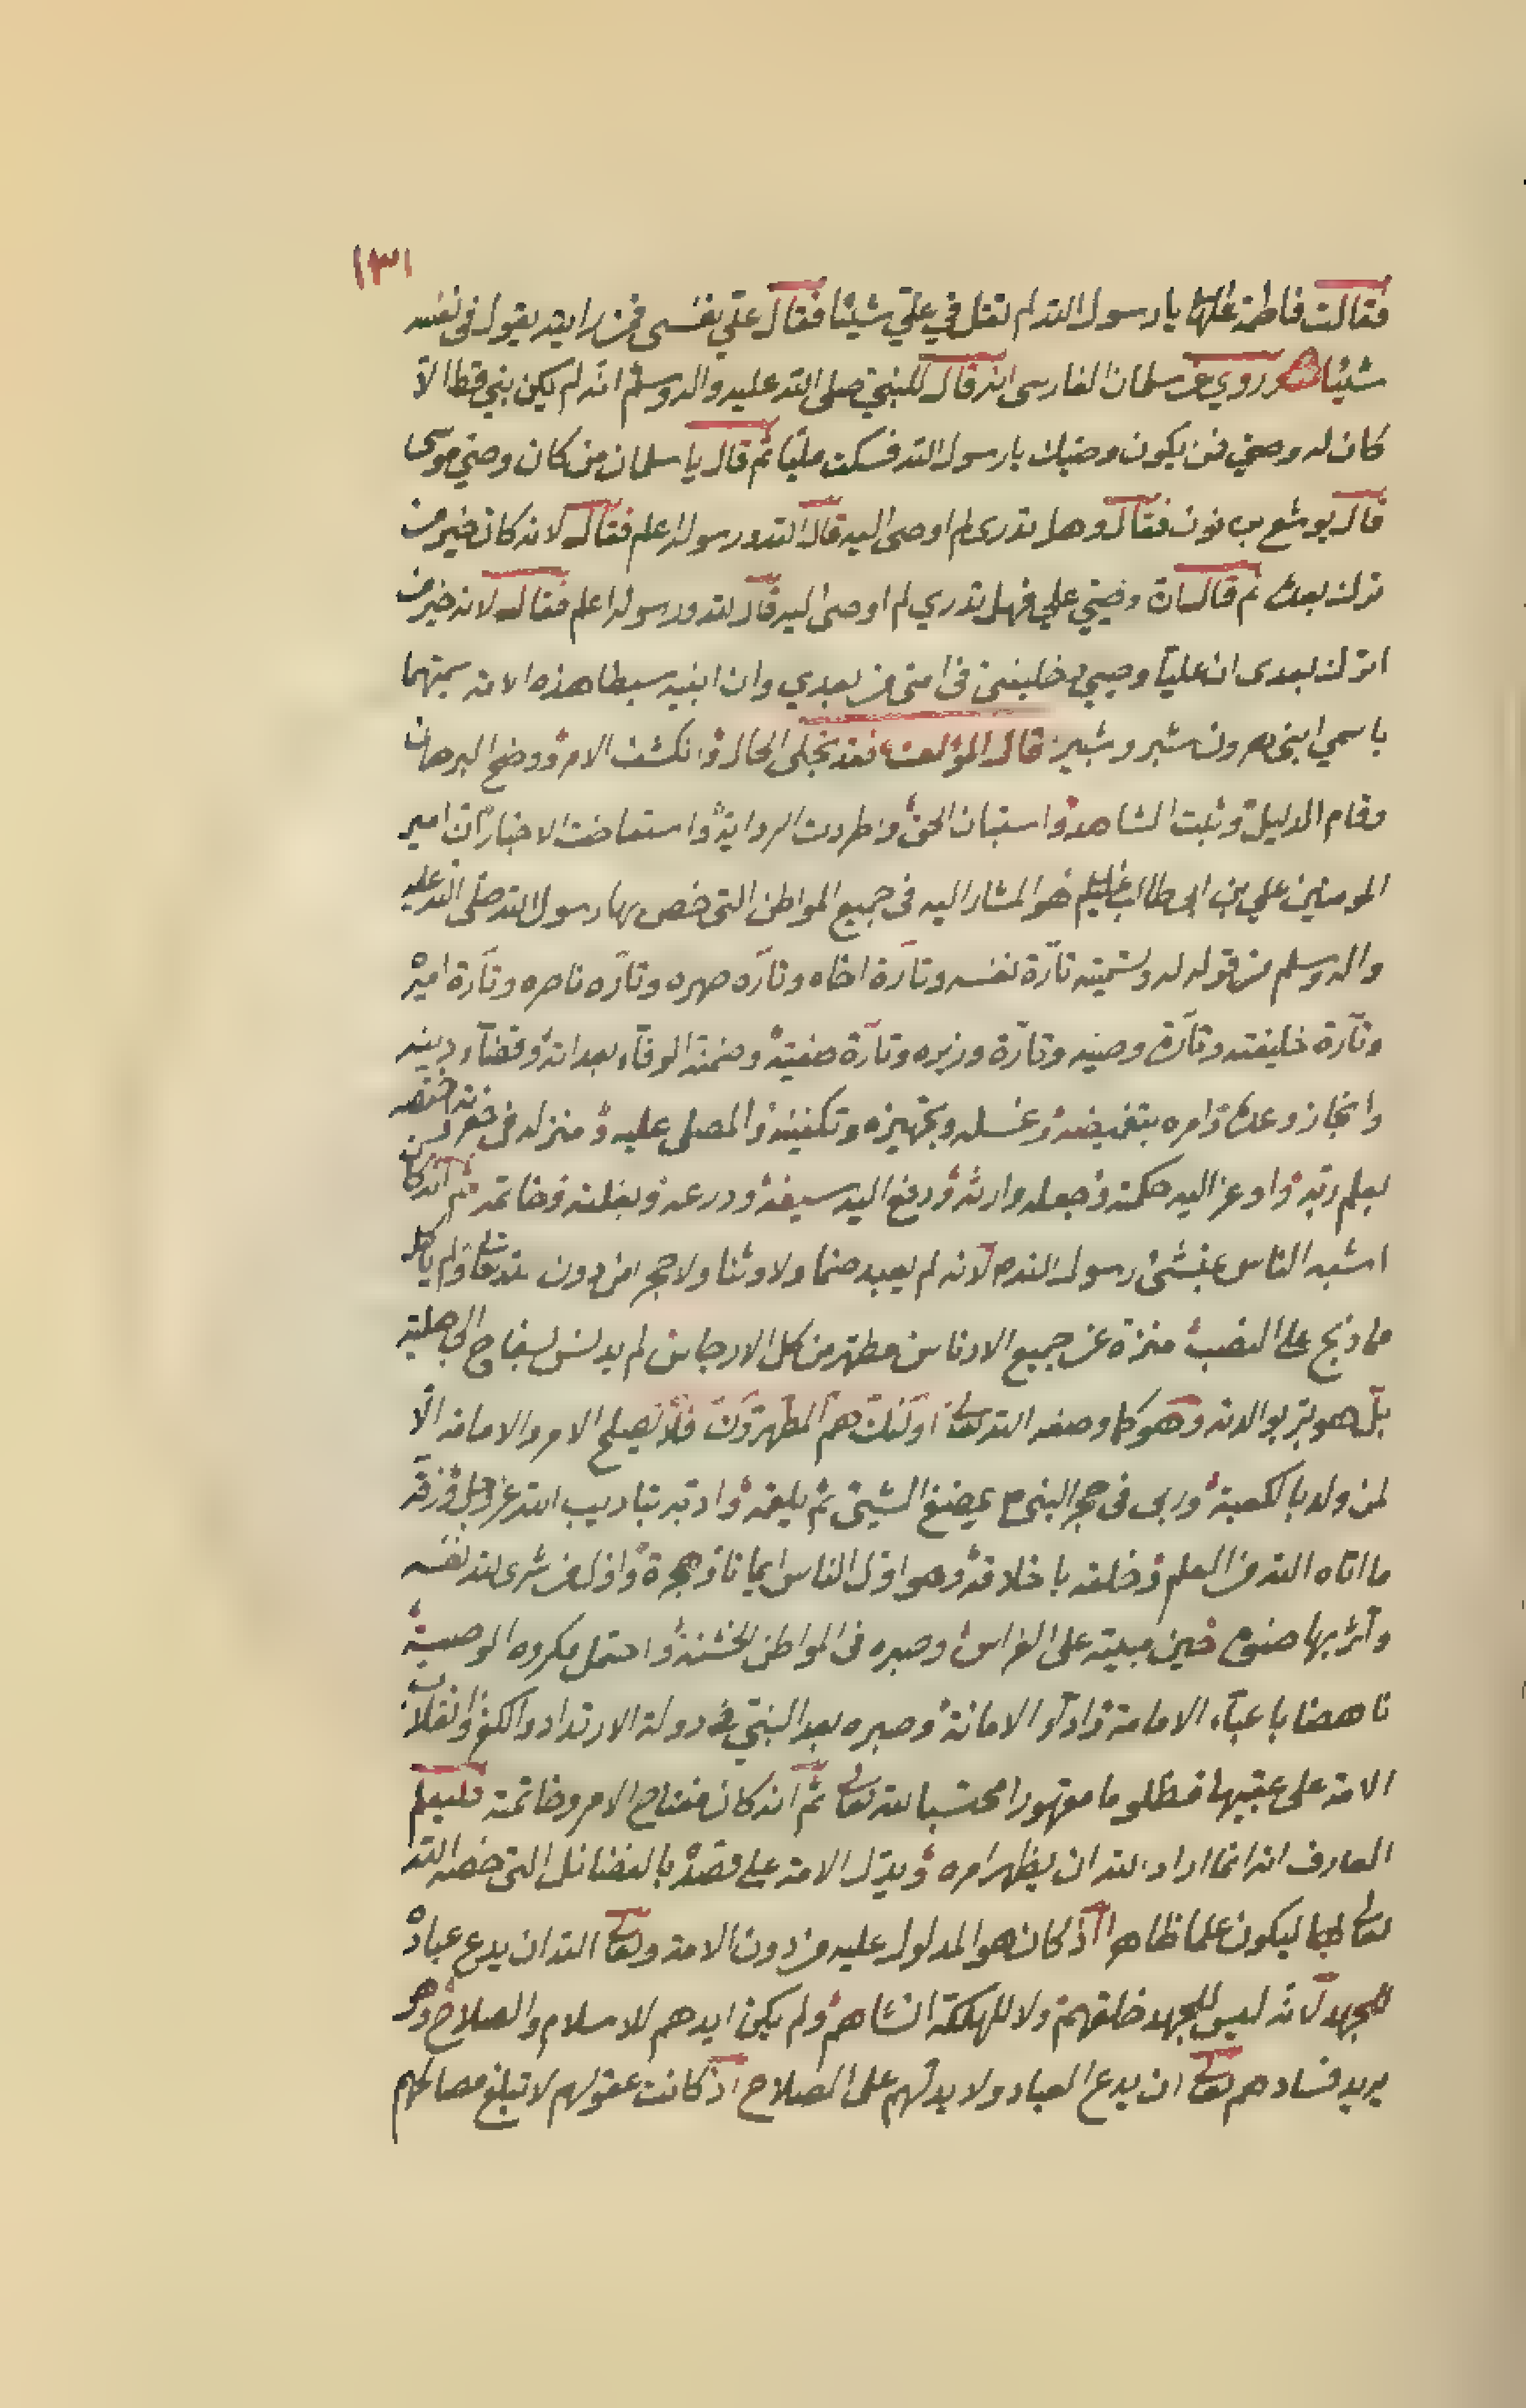 ١٣١
فقالت فاطمة عليها يا رسول الله لم تقل في علي شيئا فقال علي نفسي فمن رايته يقول في نفسه
شيئا وروي عن سلمان الفارسي انه قال للنبي صلى الله عليه واله وسلم انه لم يكن نبي قط الا
كان له وصي فمن يكون وصيك يا رسول الله فسكت مليا ثم قال يا سلمان من كان وصي موسى
قال يوشع بن نون فقال وهل تدري لم اوصى اليه قال الله ورسوله اعلم فقال لانه كان خير من
ترك بعده ثم قال ان وصيي علي فهل تدري لم اوصى اليه قال الله ورسوله اعلم فقال لانه خير من
اترك بعدي ان عليا وصيي وخليفتي في امتي من بعدي وان ابنيه سبطا هذه الامة سميتهما
باسمي ابني هرون شبر وشبير قال المؤلف فقد تجلى الحال وانكشف الامر ووضح البرهان
وقام الدليل وثبت الشاهد واستبان الحق واطردت الرواية واستفاضت الاخبار ان امير
المومنين علي بن ابي طالب عليلم هو المشار اليه في جميع المواطن التي خص بها رسول الله صلى الله عليه
واله وسلم من قوله له وتسميته تارة نفسه وتارة اخاه وتاره صهره وتاره ناصره وتارة اميره
وتارة خليفته وتارة وصيه وتارة وزيره وتارة صفيه وضمنه الوفاء بعداته وقضاء دينه
وانجاز وعده وامره بتغميضه وغسله وتجهيزه وتكفينه والمصلى عليه ومنزله في
بعلم ربه واوعز اليه حكمته وجعله وارثه ودفع اليه سيفه ودرعه وبغلته وخاتمه ثم انه كان
اشبه الناس رسول الله ص لانه لم يعبد صنما ولا وثنا ولا حجرا من دون الله تعالى ولم ياكل
ما ذبح على النصب منزه عن جميع الادناس مطهر من كل الارجاس لم يدنس بسفاح الجاهلية
بل هو بر بوالدته وهو كما وصفه الله تعالى اولئك هم المطهرون فلا يصلح الامر والامامة الا
لمن ولد بالكعبة وربي في حجر النبي ص يمضغ الشيئ ثم يلقمه وادبه بتاديب الله عز وجل وزقه
ما اتاه الله من العلم وخلقه باخلاقه وهو اول الناس ايمانا وهجرة واول من شرى لله نفسه
وآثر بها صنوه حين مبيته على الفراش وصبره في المواطن الخشنة واحتمل مكروه الوصية
ناهضا باعباء الامامة واداء الامانة وصبره بعد النبي في دولة الارتداد والكفر وانقلاب
الامة على عقبيها مظلوما مقهورا محتسبا لله تعالى ثم انه كان مفتاح الامر وخاتمه فليعلم
العارف انه انما اراد الله ان يظهر امره ويدل الامة على قصده بالفضائل التي خصه الله
تعالى بها ليكون علما ظاهرا اذ كان هو المدلول عليه من دون الامة وتعالى الله ان يدع عباده
للجهد لانه ليس للجهد خلقهم ولا للهلكة انشاهم ولم يكن ايدهم للاسلام والصلاح وهو
يريد فسادهم تعالى ان يدع العباد ولا يدلهم على الصلاح اذ كانت عقولهم لا تبلغ مصالحهم